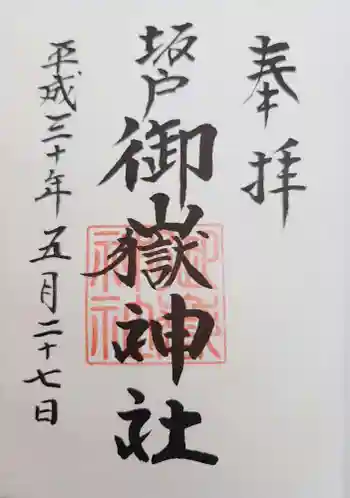 奉拝
坂戸
御嶽神社
平成三十年五月二十七日
御嶽
神社